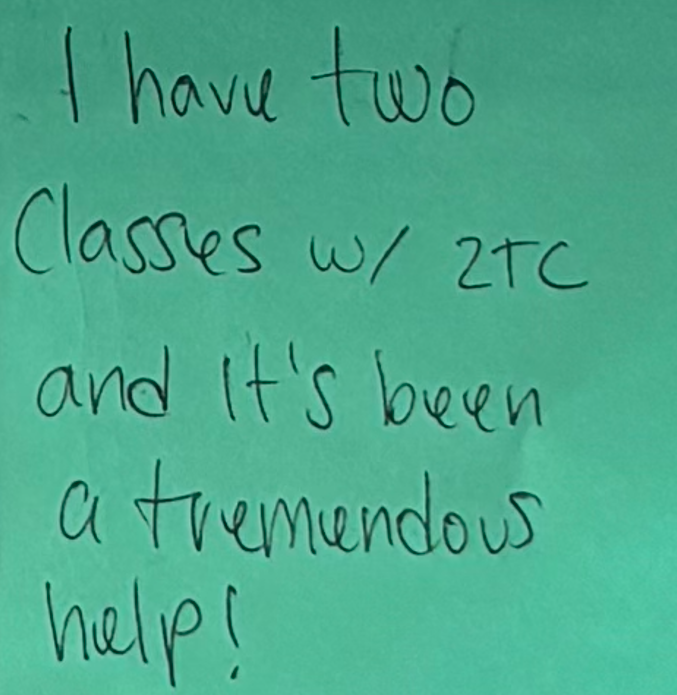 I have two
Classes w/ ZTC
and it's been
a tremendous
help!